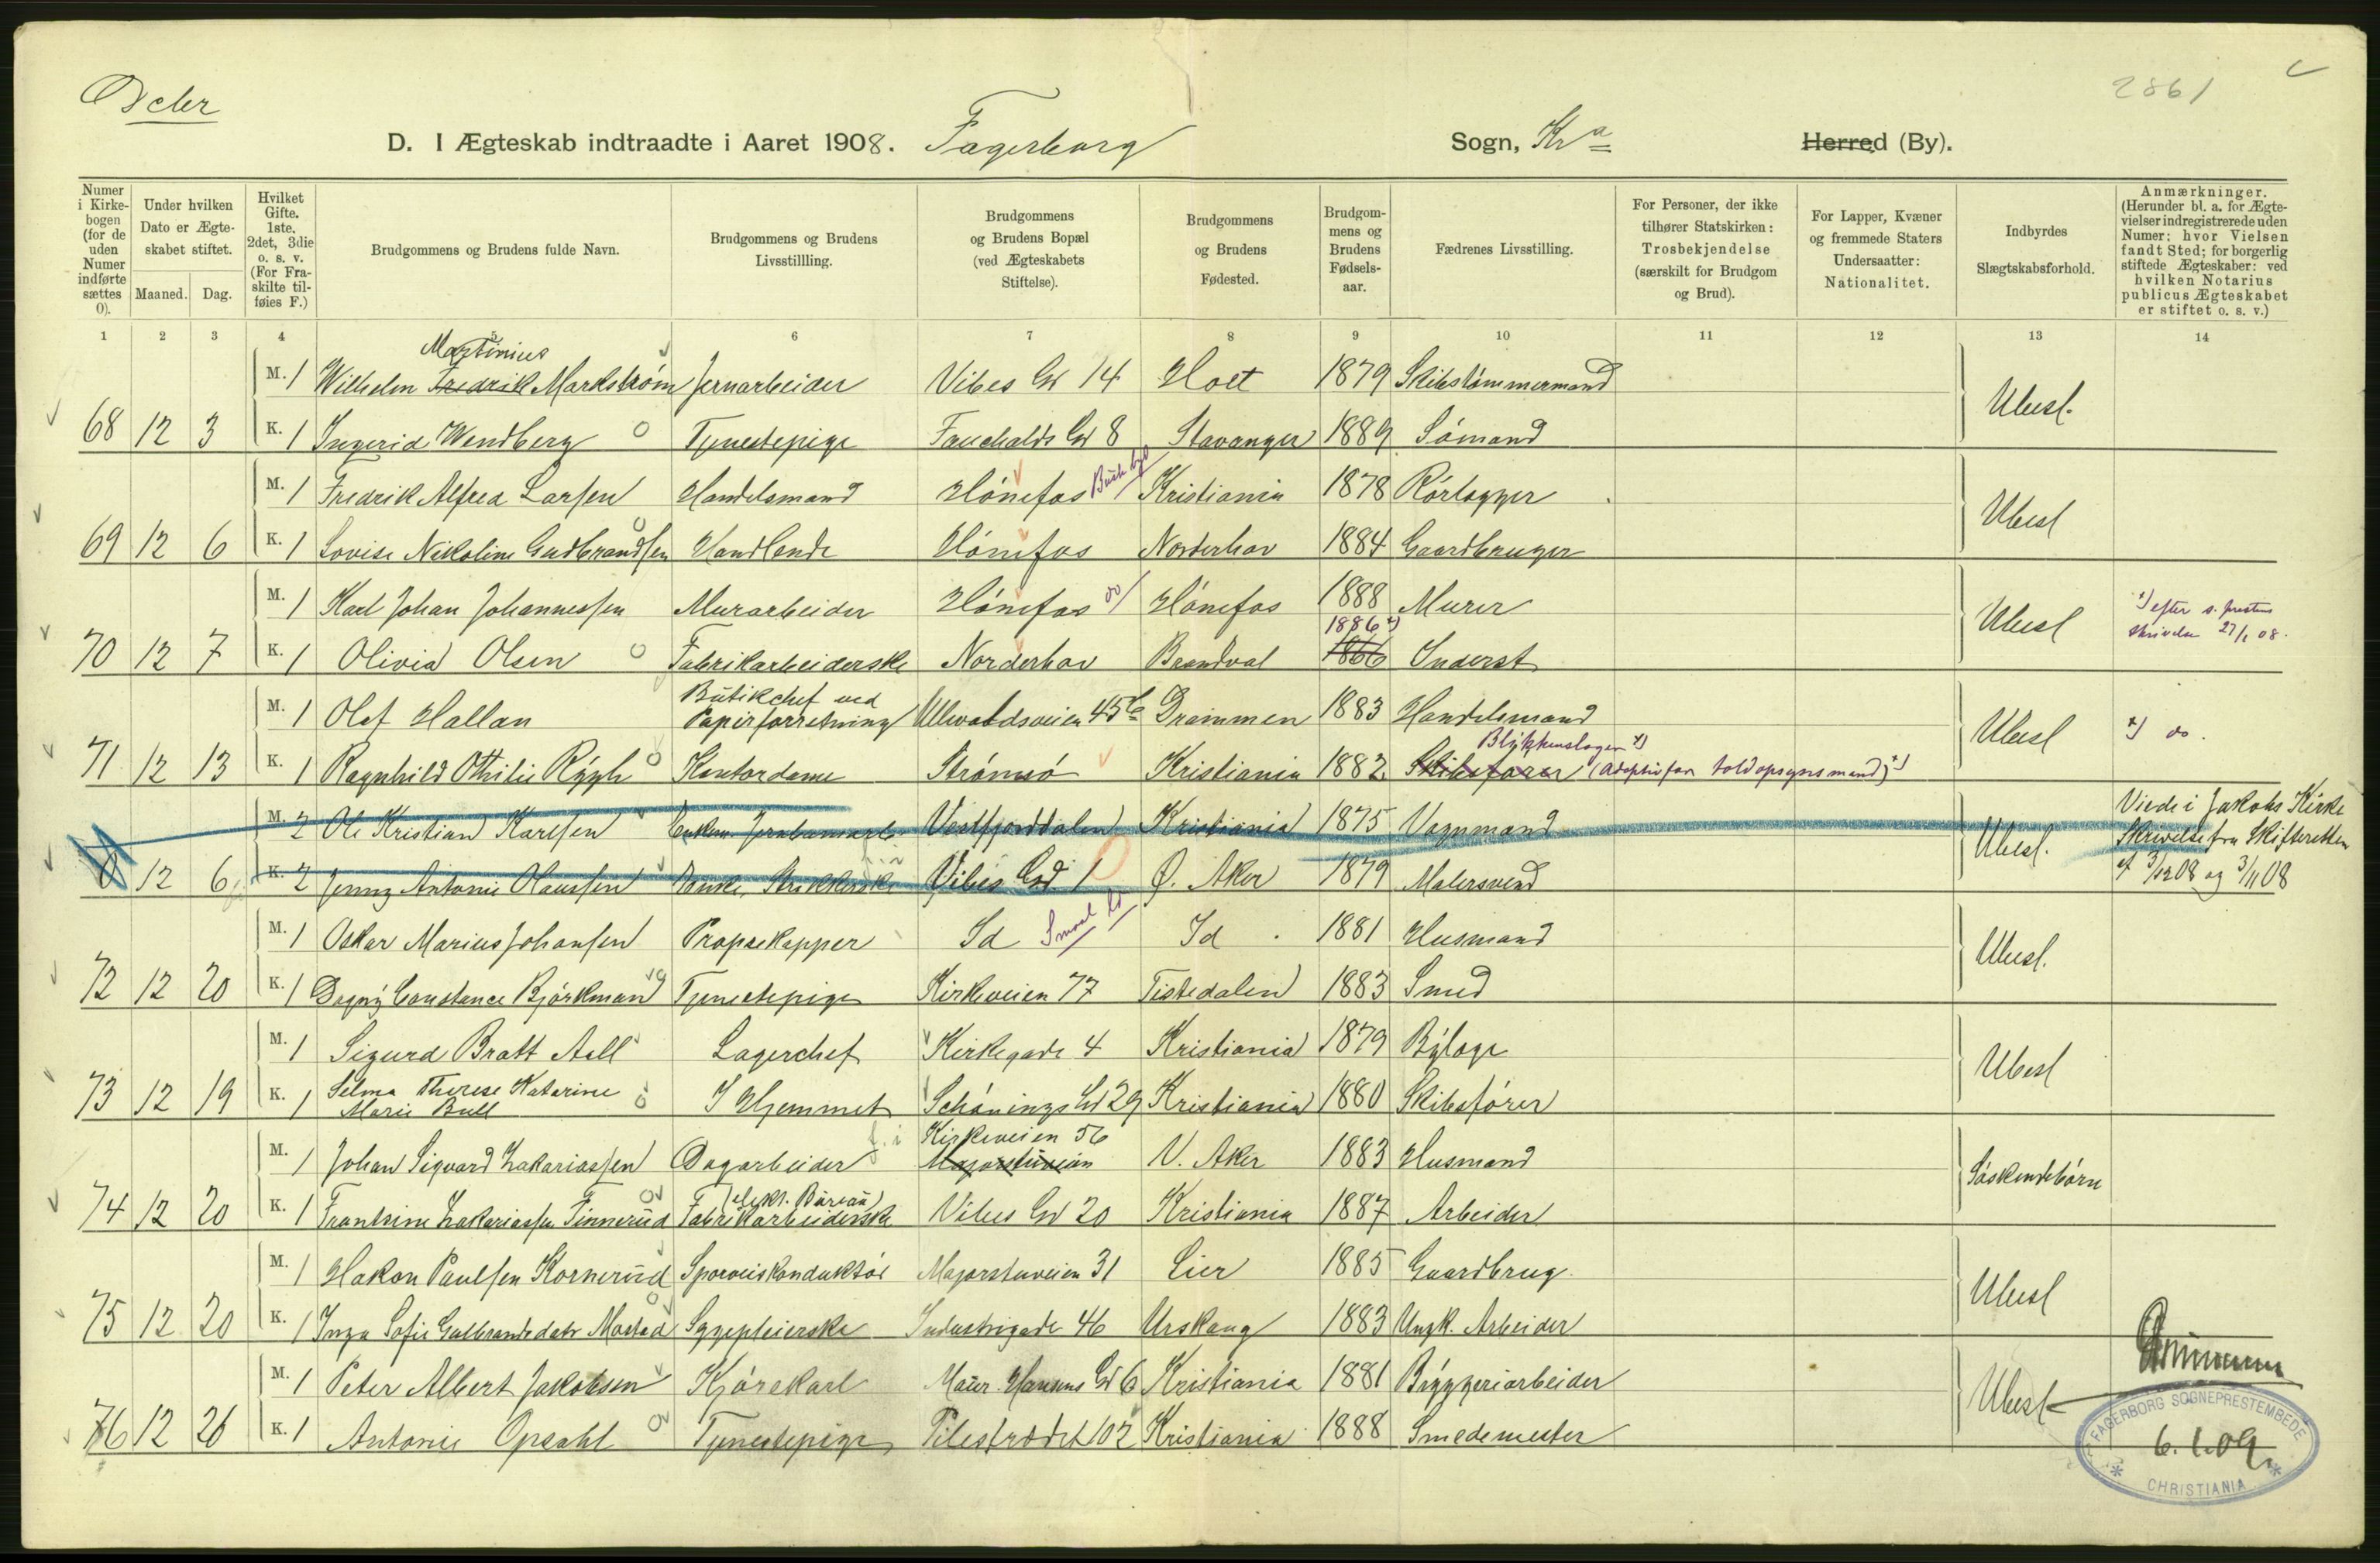 2861
D. I Ægteskab indtraadte i Aaret 1908. Fagerborg Sogn, Kra Herred (By).
Numer i Kirkebogen (for de uden Numer indførte sættes 0).
Under hvilken Dato er Ægteskabet stiftet.
Maaned. Dag.
Hvilket Gifte. 1ste. 2det, 3die o. s. v. (For Fraskilte tilføies F.)
Brudgommens og Brudens fulde Navn.
Brudgommens og Brudens Livsstillling.
Brudgommens og Brudens Bopæl (ved Ægteskabets Stiftelse).
Brudgommens og Brudens Fødested.
Brudgommens og Brudens Fødselsaar.
Fædrenes Livsstilling.
For Personer, der ikke tilhører Statskirken: Trosbekjendelse (særskilt for Brudgom og Brud).
For Lapper, Kvæner og fremmede Staters Undersaatter: Nationalitet.
Indbyrdes Slægtskabsforhold.
Anmærkninger. (Herunder bl. a. for Ægtevielser indregistrerede uden Numer; hvor Vielsen fandt Sted; for borgerlig stiftede Ægteskaber: ved hvilken Notarius publicus Ægteskabet er stiftet o. s. v.)
1 2 3 4 5 6 7 8 9 10 11 12 13 14
Martinius
M. 1 Wilhelm Fredrik Markström Jernarbeider Vibes Gd 14 Holt 1879 Skibstømmermand Ubesl.
68 12 3 K. 1 Ingerid Wendberg Tjenestepige Fauchalds Gd 8 Stavanger 1889 Sømand
M. 1 Fredrik Alfred Larsen Handelsmand Hønefos Kristiania 1878 Rørlægger Ubesl
69 12 6 K. 1 Lovise Nikoline Gudbrandsen Handlende Hønefos Norderhov 1884 Gaardbruger
M. 1 Karl Johan Johannessen Murarbeider Hønefos Hønefos 1888 Murer Ubesl x) efter s. prestens skrivelse 27/1 08.
1886 x)
70 12 7 K. 1 Olivia Olsen Fabrikarbeiderske Norderhov Brandval 1866 Inderst
Butikchef ved
M. 1 Olaf Hallan Papirforretning Ullevoldsveien 45b Drammen 1883 Handelsmand Ubesl x) do.
Blikkenslager x)
71 12 13 K. 1 Ragnhild Othilie Rygh Kontordame Strømsø Kristiania 1882 Skibsfører (Adoptivfar toldopsynsmand) x)
M. 2 Ole Kristian Karlsen Enkem. Vestfjorddalen Kristiania 1875 Vognmand Ubesl. Viede i Jakobs Kirke
Skrivelse fra Skifteretten
0 12 6 K. 2 Jenny Antonie Olaussen Vibes Gd 1 Ø. Aker 1879 Malersvend af 3/12 08 og 3/11 08
M. 1 Oskar Marius Johansen Propsekapper Id Id 1881 Husmand Ubesl.
72 12 20 K. 1 Dagny Constance Bjørkman Tjenestepige Kirkeveien 77 Tistedalen 1883 Smed
M. 1 Sigurd Bratt Aall Lagerchef Kirkegade 4 Kristiania 1879 Bylæge Ubesl
73 12 19 K. 1 Selma Therese Katarine Marie Bull I Hjemmet Schønings Gd 29 Kristiania 1880 Skibsfører
Kirkeveien 56
M. 1 Johan Sigvard Zakariassen Dagarbeider Majorstuveien V. Aker 1883 Husmand Søskendebørn
(elekt. Bureau)
74 12 20 K. 1 Frantsine Zakariassen Finnerud Fabrikarbeiderske Vibes Gd 20 Kristiania 1887 Arbeider
M. 1 Hakon Paulsen Kornerud Sporveiskonduktør Majorstuveien 31 Lier 1885 Gaardbrug. Ubesl
75 12 20 K. 1 Inga Sofie Gulbrandsdatr Mostad Sygepleierske Industrigade 46 Urskoug 1883 Ungk. Arbeider
M. 1 Peter Albert Jakobsen Kjørekarl Maur. Hansens Gd 6 Kristiania 1881 Bryggeriarbeider Ubesl
76 12 26 K. 1 Antonie Opsahl Tjenestepige Pilestrædet 102 Kristiania 1888 Smedemester
FAGERBORG SOGNEPRESTEMBEDE
6.1.09.
CHRISTIANIA